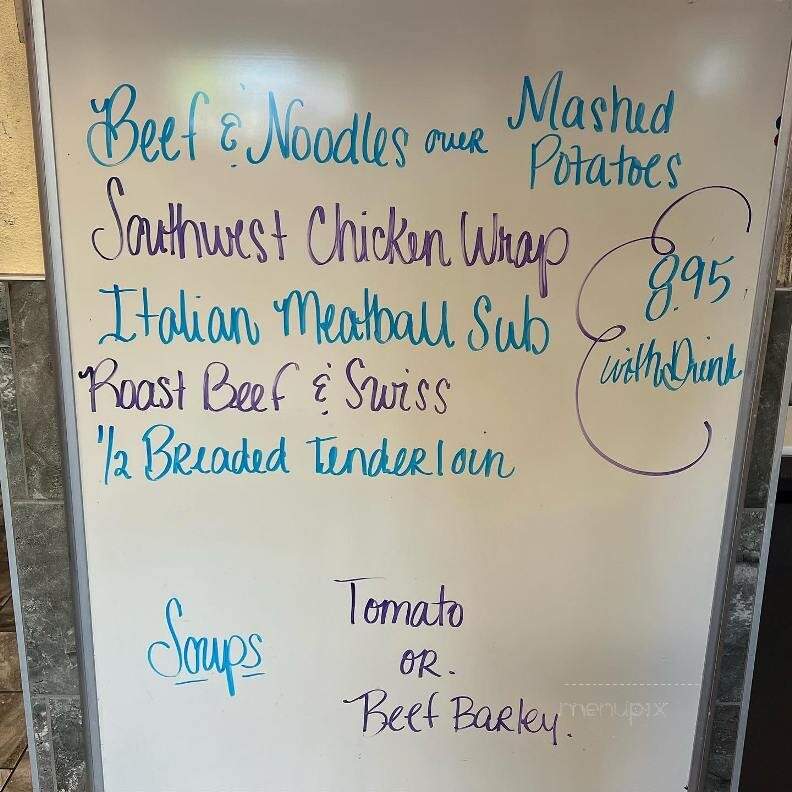 Beef & Noodles over Mashed Potatoes
Southwest Chicken Wrap
Italian Meatball Sub
Roast Beef & Swiss
1/2 Breaded Tenderloin
8.95
with Drink
Soups
Tomato
OR.
Beef Barley.
menupix